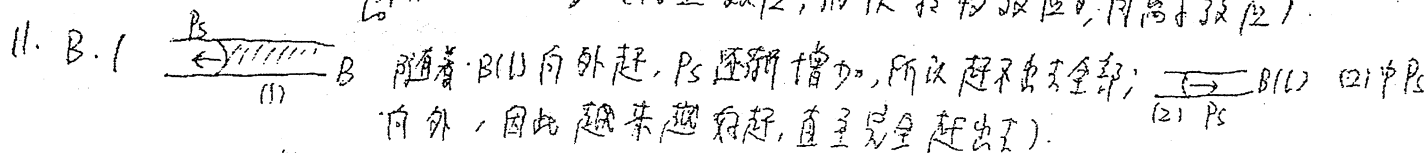 11. B. (
Ps
B
(1)
随着 B(l) 向外赶, Ps 逐渐增加, 所以赶不出去全部;
B(l) (2)中Ps
(2) Ps
向外, 因此越来越好赶, 直至完全赶出去).